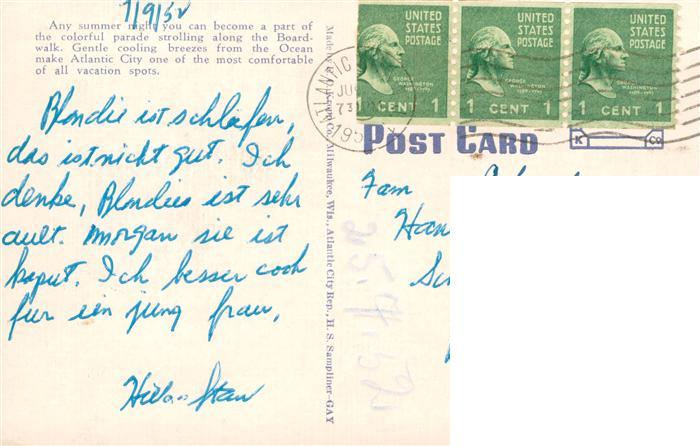 7/9/52
Any summer night you can become a part of
the colorful parade strolling along the Board-
walk. Gentle cooling breezes from the Ocean
make Atlantic City one of the most comfortable
of all vacation spots.
Blondie ist schlafen,
das ist nicht gut. Ich
denke, Blondies ist sehr
ault. Morgan sie ist
kaput. Ich besser coch
fur ein jung frau,
Made Milwaukee, Wis., Atlantic City Rep., H. S. Sampliner-GAY
UNITED STATES POSTAGE
GEORGE WASHINGTON
1 CENT 1
UNITED STATES POSTAGE
GEORGE WASHINGTON
1 CENT 1
UNITED STATES POSTAGE
GEORGE WASHINGTON
1 CENT 1
ATLANTIC
POST CARD
K Co
Fam